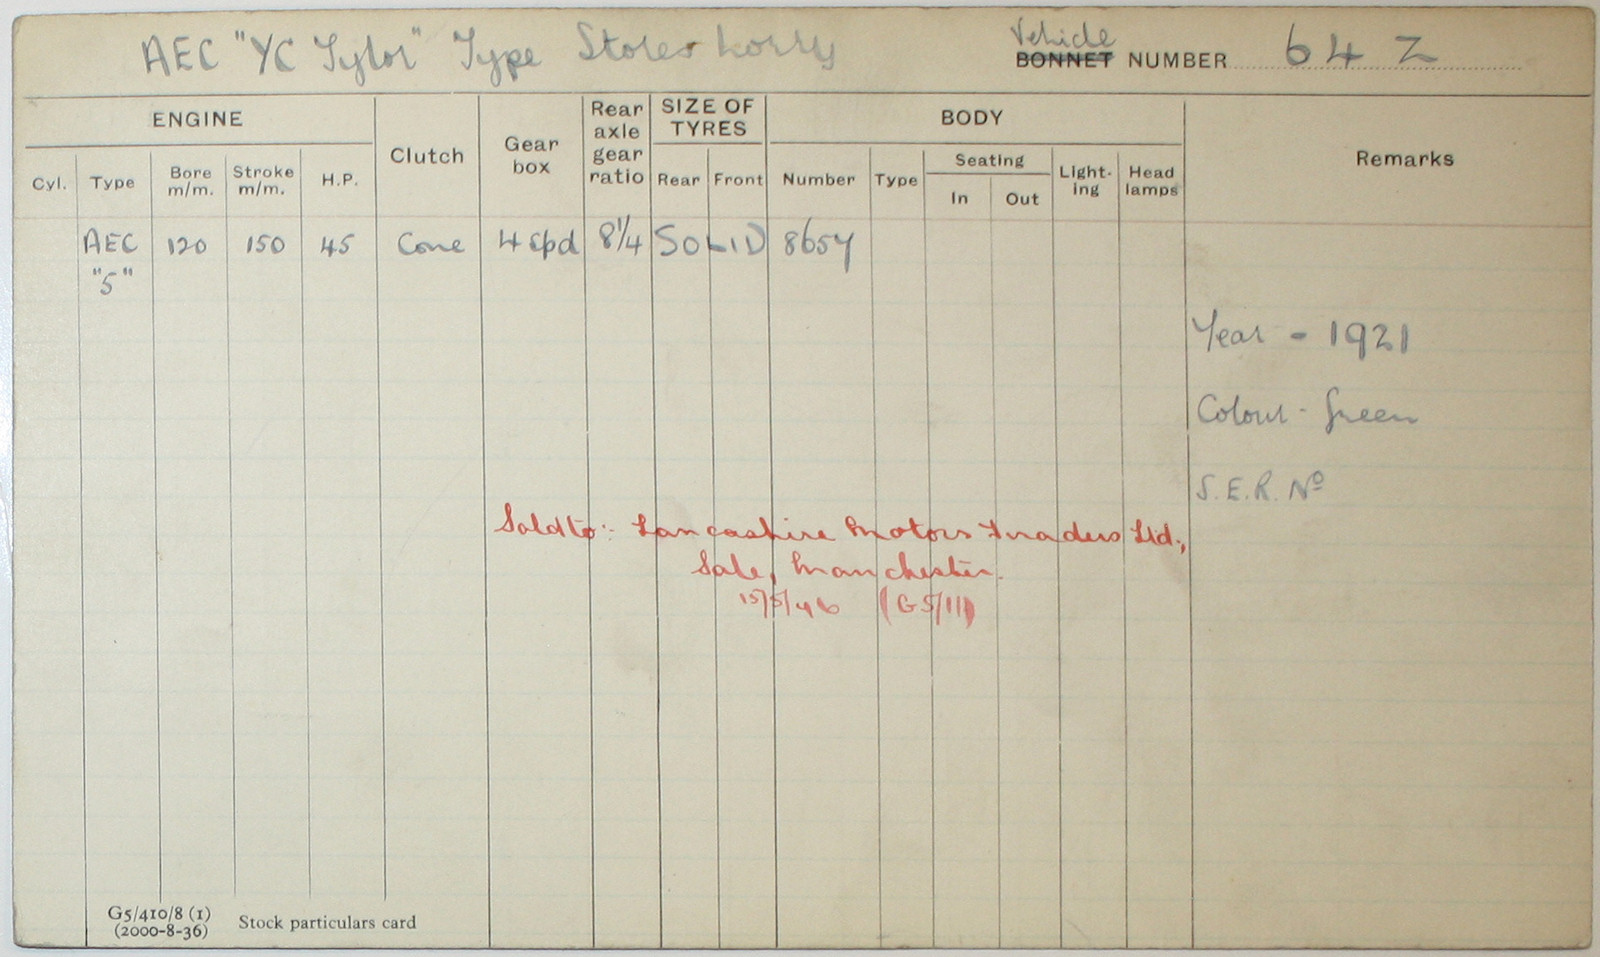 AEC "YC Tylor" Type Stores Lorry Vehicle
BONNET NUMBER 64 Z
ENGINE Clutch Gear box Rear axle gear ratio SIZE OF TYRES BODY Remarks
Cyl. Type Bore m/m. Stroke m/m. H.P. Rear Front Number Type Seating In Out Light-ing Head lamps
AEC "5" 120 150 45 Cone 4 spd 8¼ SOLID 8654
Year - 1921
Colour - Green
S.E.R. Nº
Sold to:- Lancashire Motors Traders Ltd.,
Sale, Manchester.
15/5/46 (G5/111)
G5/410/8 (1)
(2000-8-36) Stock particulars card